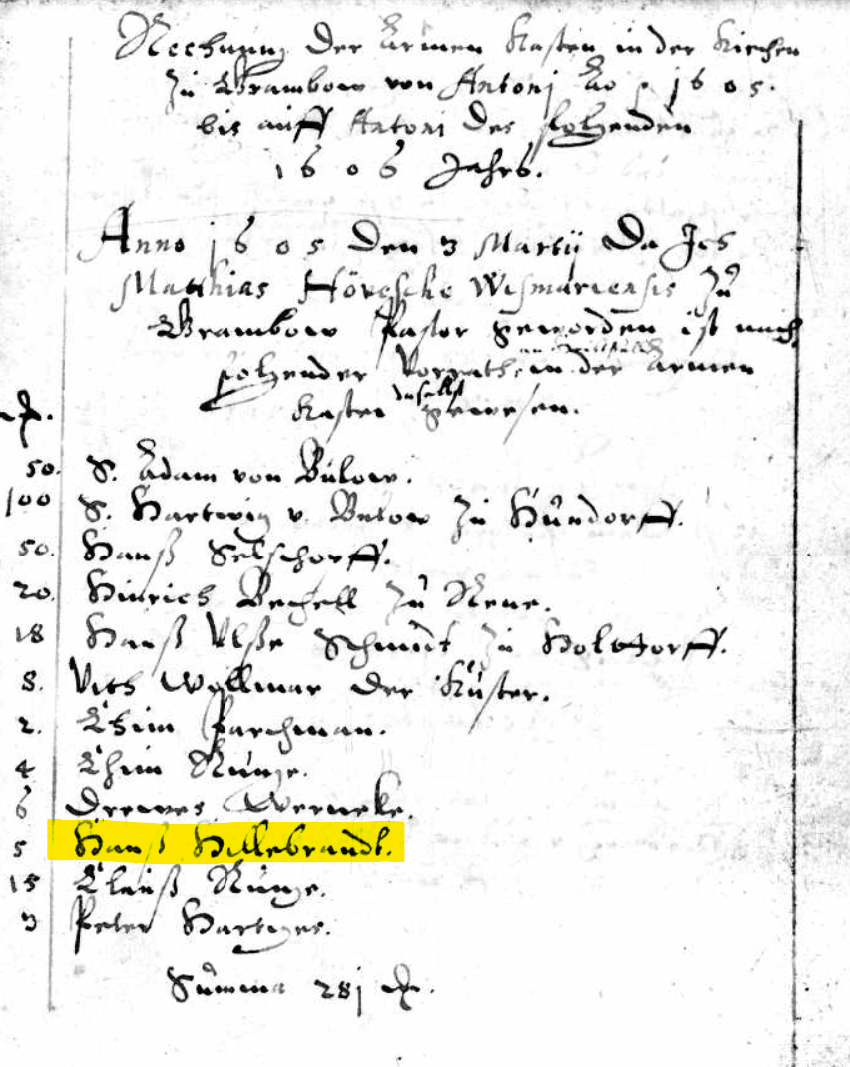 Rechnung der Armen Kasten in der Kirchen
zu Grambow von Antonj Ao. 1605.
bis auff Antoni des folgenden
1606 Jahrs.
Anno 1605 den 3 Martij Da Ich
Matthias Hövesche Wismariensis zu
Grambow Pastor geworden ist nach
folgender Vorrath in der Armen
Kasten daselbst gewesen.
50. S. Adam von Bülow.
100 S. Hartwig v. Bülow zu Hundorff.
50. Hanß Selschorff.
20. Hinrich Bechell zu Rene.
18 Hanß Ulße Schmidt zu Holttorff.
8. Vith Wollmar der Küster.
2. Chim Parchman.
4 Chim Runge.
6 Drewes Werneke.
5 Hanß Hillebrandt.
15 Clauß Runge.
3 Peter Hartiges.
Summa 281